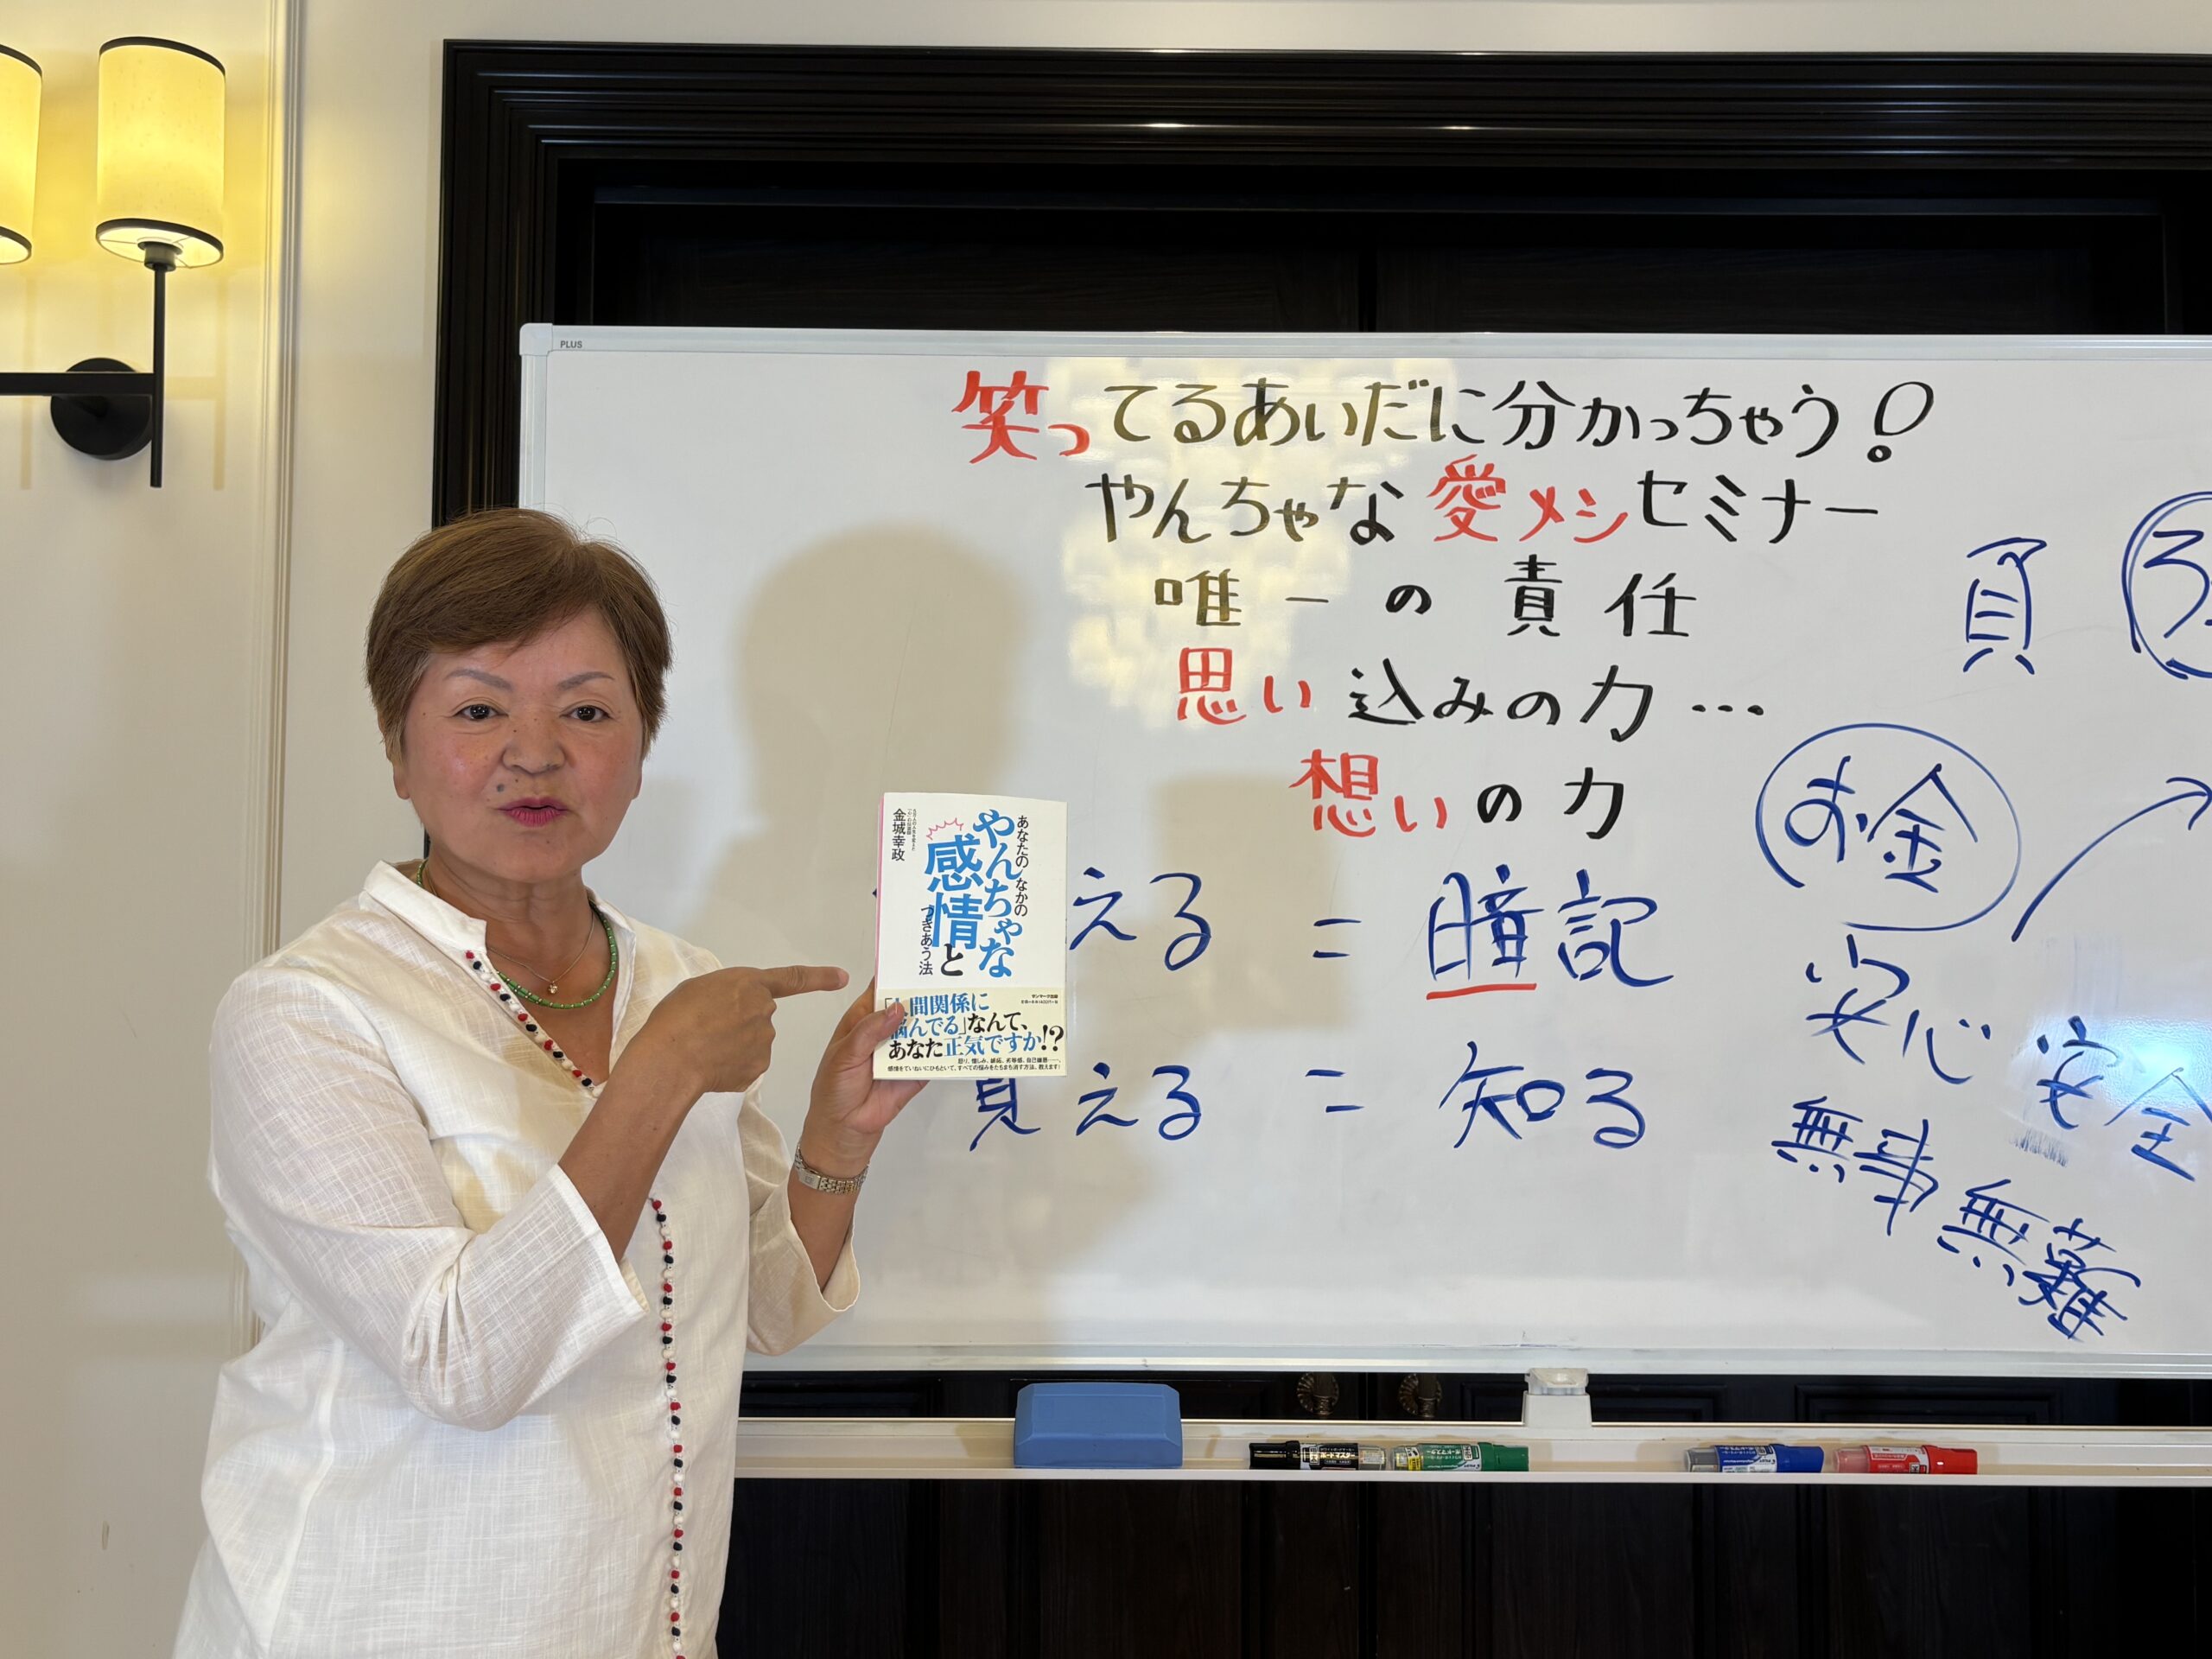 PLUS
笑ってるあいだに分かっちゃう!
やんちゃな愛メシセミナー
唯一の責任
思い込みの力…
想いの力
える = 暗記
覚える = 知る
負
お金
安心 安全
無事
無難
あなたのなかの
やんちゃな
感情と
つきあう法
金城幸政
「人間関係に
悩んでる」なんて、
あなた正気ですか!?
怒り、憎しみ、嫉妬、劣等感、自己嫌悪――。
感情をていねいにひもといて、すべての悩みをたちまち消す方法、教えます!
サンマーク出版